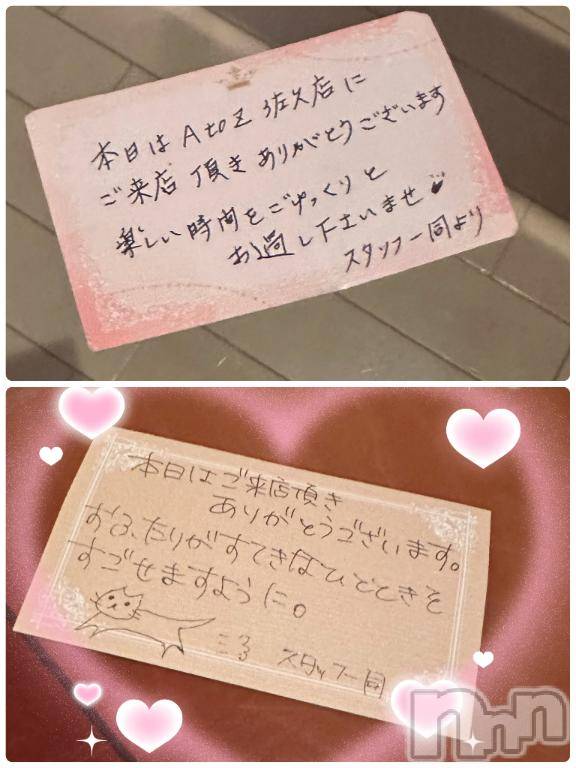 本日は AtoZ 佐久店に
ご来店 頂き ありがとうございます
楽しい時間をごゆっくりと
お過し下さいませ
スタッフ一同より
本日はご来店頂き
ありがとうございます。
おふたりがすてきなひとときを
すごせますように。
スタッフ一同
nnn